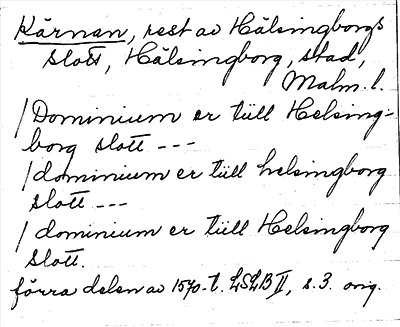 Kärnan, rest av Hälsingborgs
slott, Hälsingborg, stad,
Malm. l.
/ Dominium er tiill Helsing-
borg slott ---
/ dominium er tiill helsingborg
slott ---
/ dominium er tiill Helsingborg
slott.
förra delen av 1570-t. LSLB II, s. 3. orig.